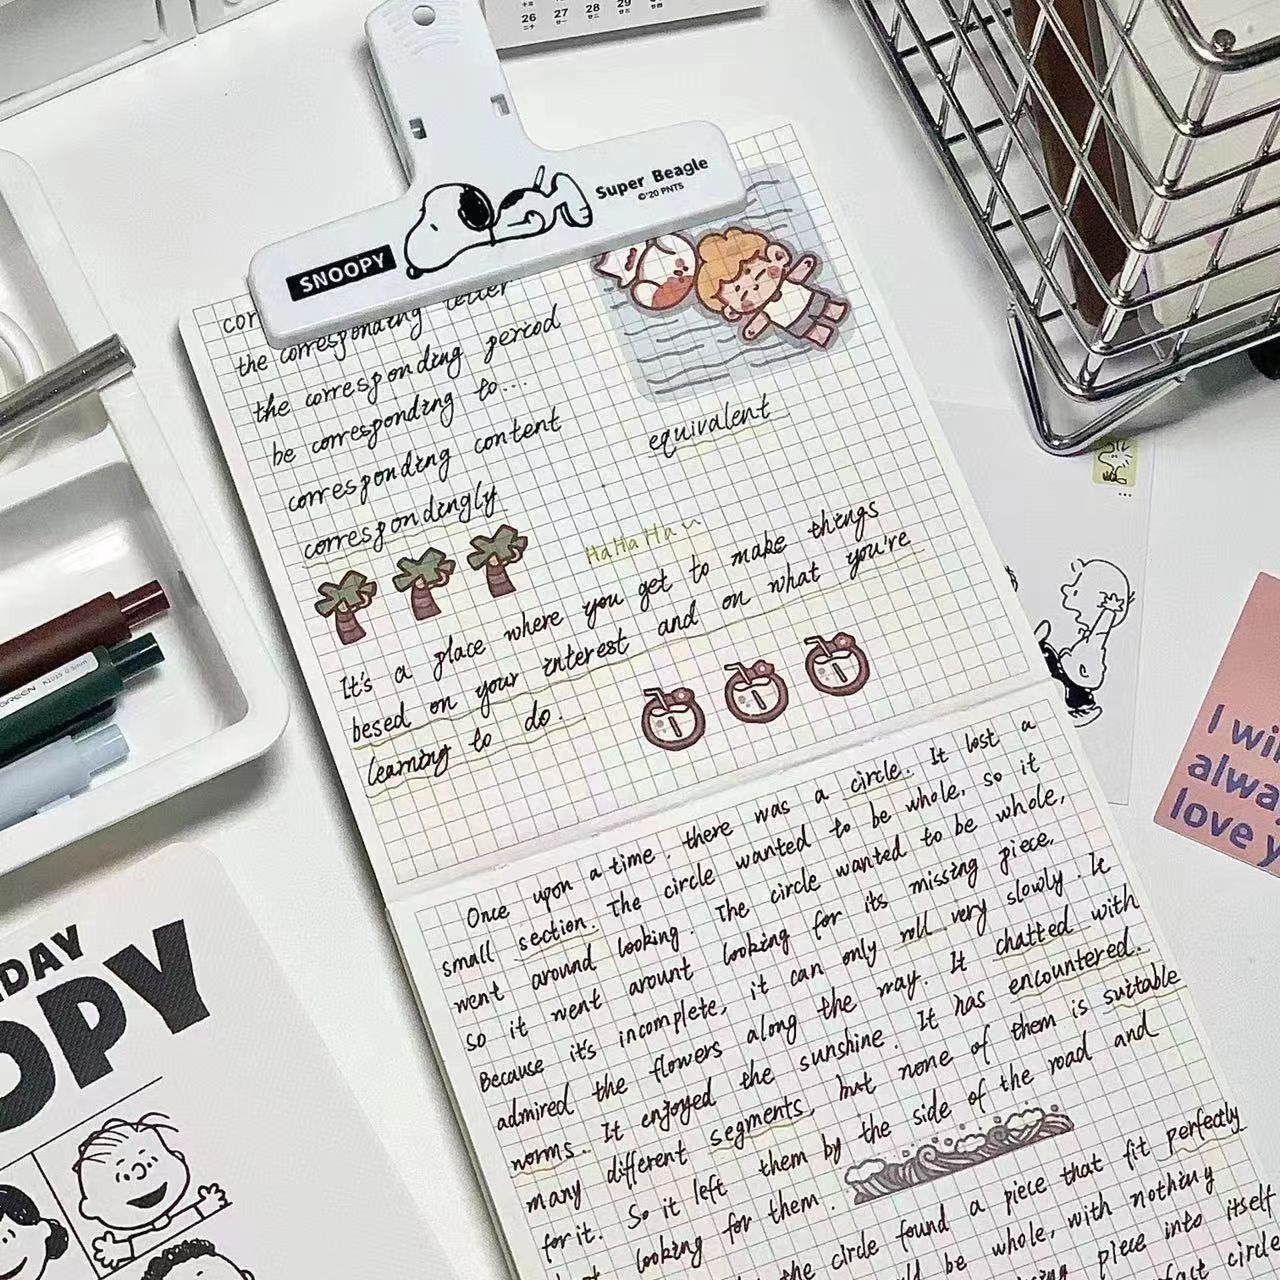 26 27 28 29
SNOOPY
Super Beagle
©'20 PNTS
the corresponding letter
the corresponding period
be corresponding to...
corresponding content
correspondingly
equivalent
HaHaHa~
It's a place where you get to make things
besed on your interest and on what you're
learning to do.
Once upon a time, there was a circle. It lost a
small section. The circle wanted to be whole, so it
went around looking. The circle wanted to be whole,
so it went arount looking for its missing piece.
Because it's incomplete, it can only roll very slowly. It
admired the flowers along the way. It chatted with
worms. It enjoyed the sunshine. It has encountered
many different segments, but none of them is suitable
for it. So it left them by the side of the road and
looking for them.
the circle found a piece that fit perfectly
be whole, with nothing
piece into itself
circle
GREEN K1015 0.5mm
DAY
OPY
I wi
alwa
love y